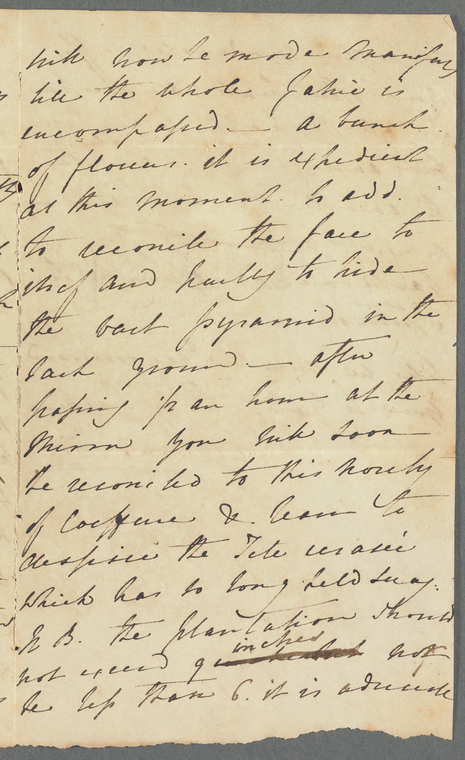 will now be made manifest
till the whole fabric is
encompassed. — a bunch
of flowers. it is expedient
at this moment. to add.
to reconcile the face to
itself and partly to hide
the vast pyramid in the
back ground. — after
passing ½ an hour at the
Mirror you will soon
be reconciled to this novelty
of Coeffure & learn to
despise the Tete
which has so long held sway.
N B. the plantation should
not exceed inches not
be less than 6. it is